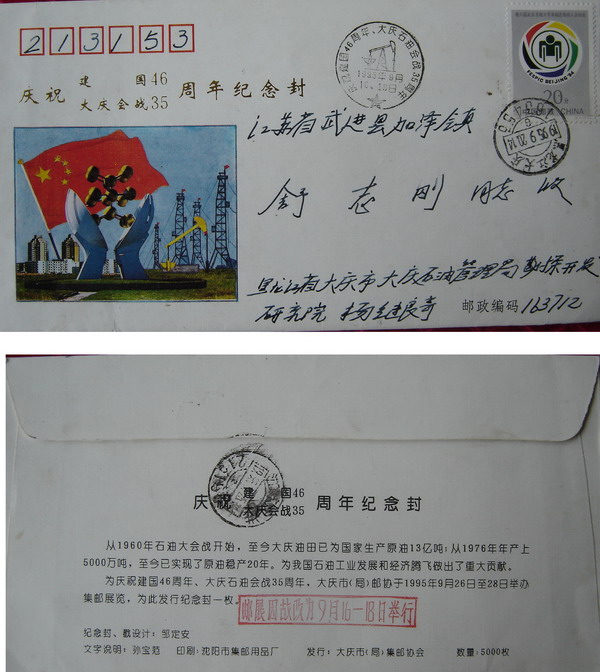 213153
庆祝 建国46 大庆会战35 周年纪念封
庆祝建国46周年、大庆石油会战35周年
1995年9月
FESPIC BEIJING'94
20分
中国邮政 CHINA
江苏省武进县加泽镇
舒志刚 同志收
黑龙江省大庆市大庆石油管理局勘探开发
研究院 杨继良寄
邮政编码163712
庆祝 建国46 大庆会战35 周年纪念封
从1960年石油大会战开始，至今大庆油田已为国家生产原油13亿吨；从1976年年产上
5000万吨，至今已实现了原油稳产20年。为我国石油工业发展和经济腾飞做出了重大贡献。
为庆祝建国46周年、大庆石油会战35周年，大庆市(局)邮协于1995年9月26日至28日举办
集邮展览，为此发行纪念封一枚。
邮展因故改为9月16—18日举行
纪念封、戳设计：邹定安
文字说明：孙宝范 印刷：沈阳市集邮用品厂 发行：大庆市(局)集邮协会 数量：5000枚